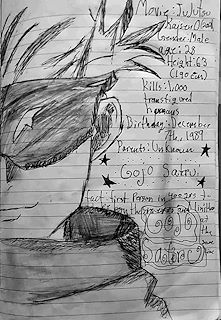 Movie: JuJutsu
Kaisen 0
Gender: Male
age: 28
Height: 6'3
(190 cm)
Kills: 1,000
transfigured
humans
Birthday: December
7th, 1989
Parents: Unknown
Gojo Satru
fact: first Person in 400 years
and
at
the